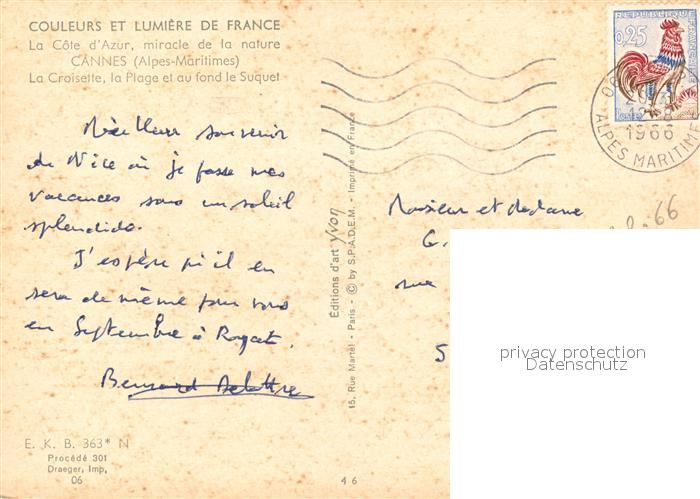 COULEURS ET LUMIÈRE DE FRANCE
La Côte d'Azur, miracle de la nature
CANNES (Alpes-Maritimes)
La Croisette, la Plage et au fond le Suquet
Meilleur souvenir
de Nice où je passe mes
vacances sous un soleil
splendide.
J'espère qu'il en
sera de même pour vous
en Septembre à Royat.
Bernard Delattre
E. K. B. 363* N
Procédé 301
Draeger, Imp,
06
Éditions d'art Yvon
15, Rue Martel - Paris - © by S.P.A.D.E.M. - Imprimé en France
46
REPUBLIQUE FRANÇAISE
0,25
1966
ALPES MARITIME
Monsieur et Madame
G.
rue
5
66
privacy protection
Datenschutz